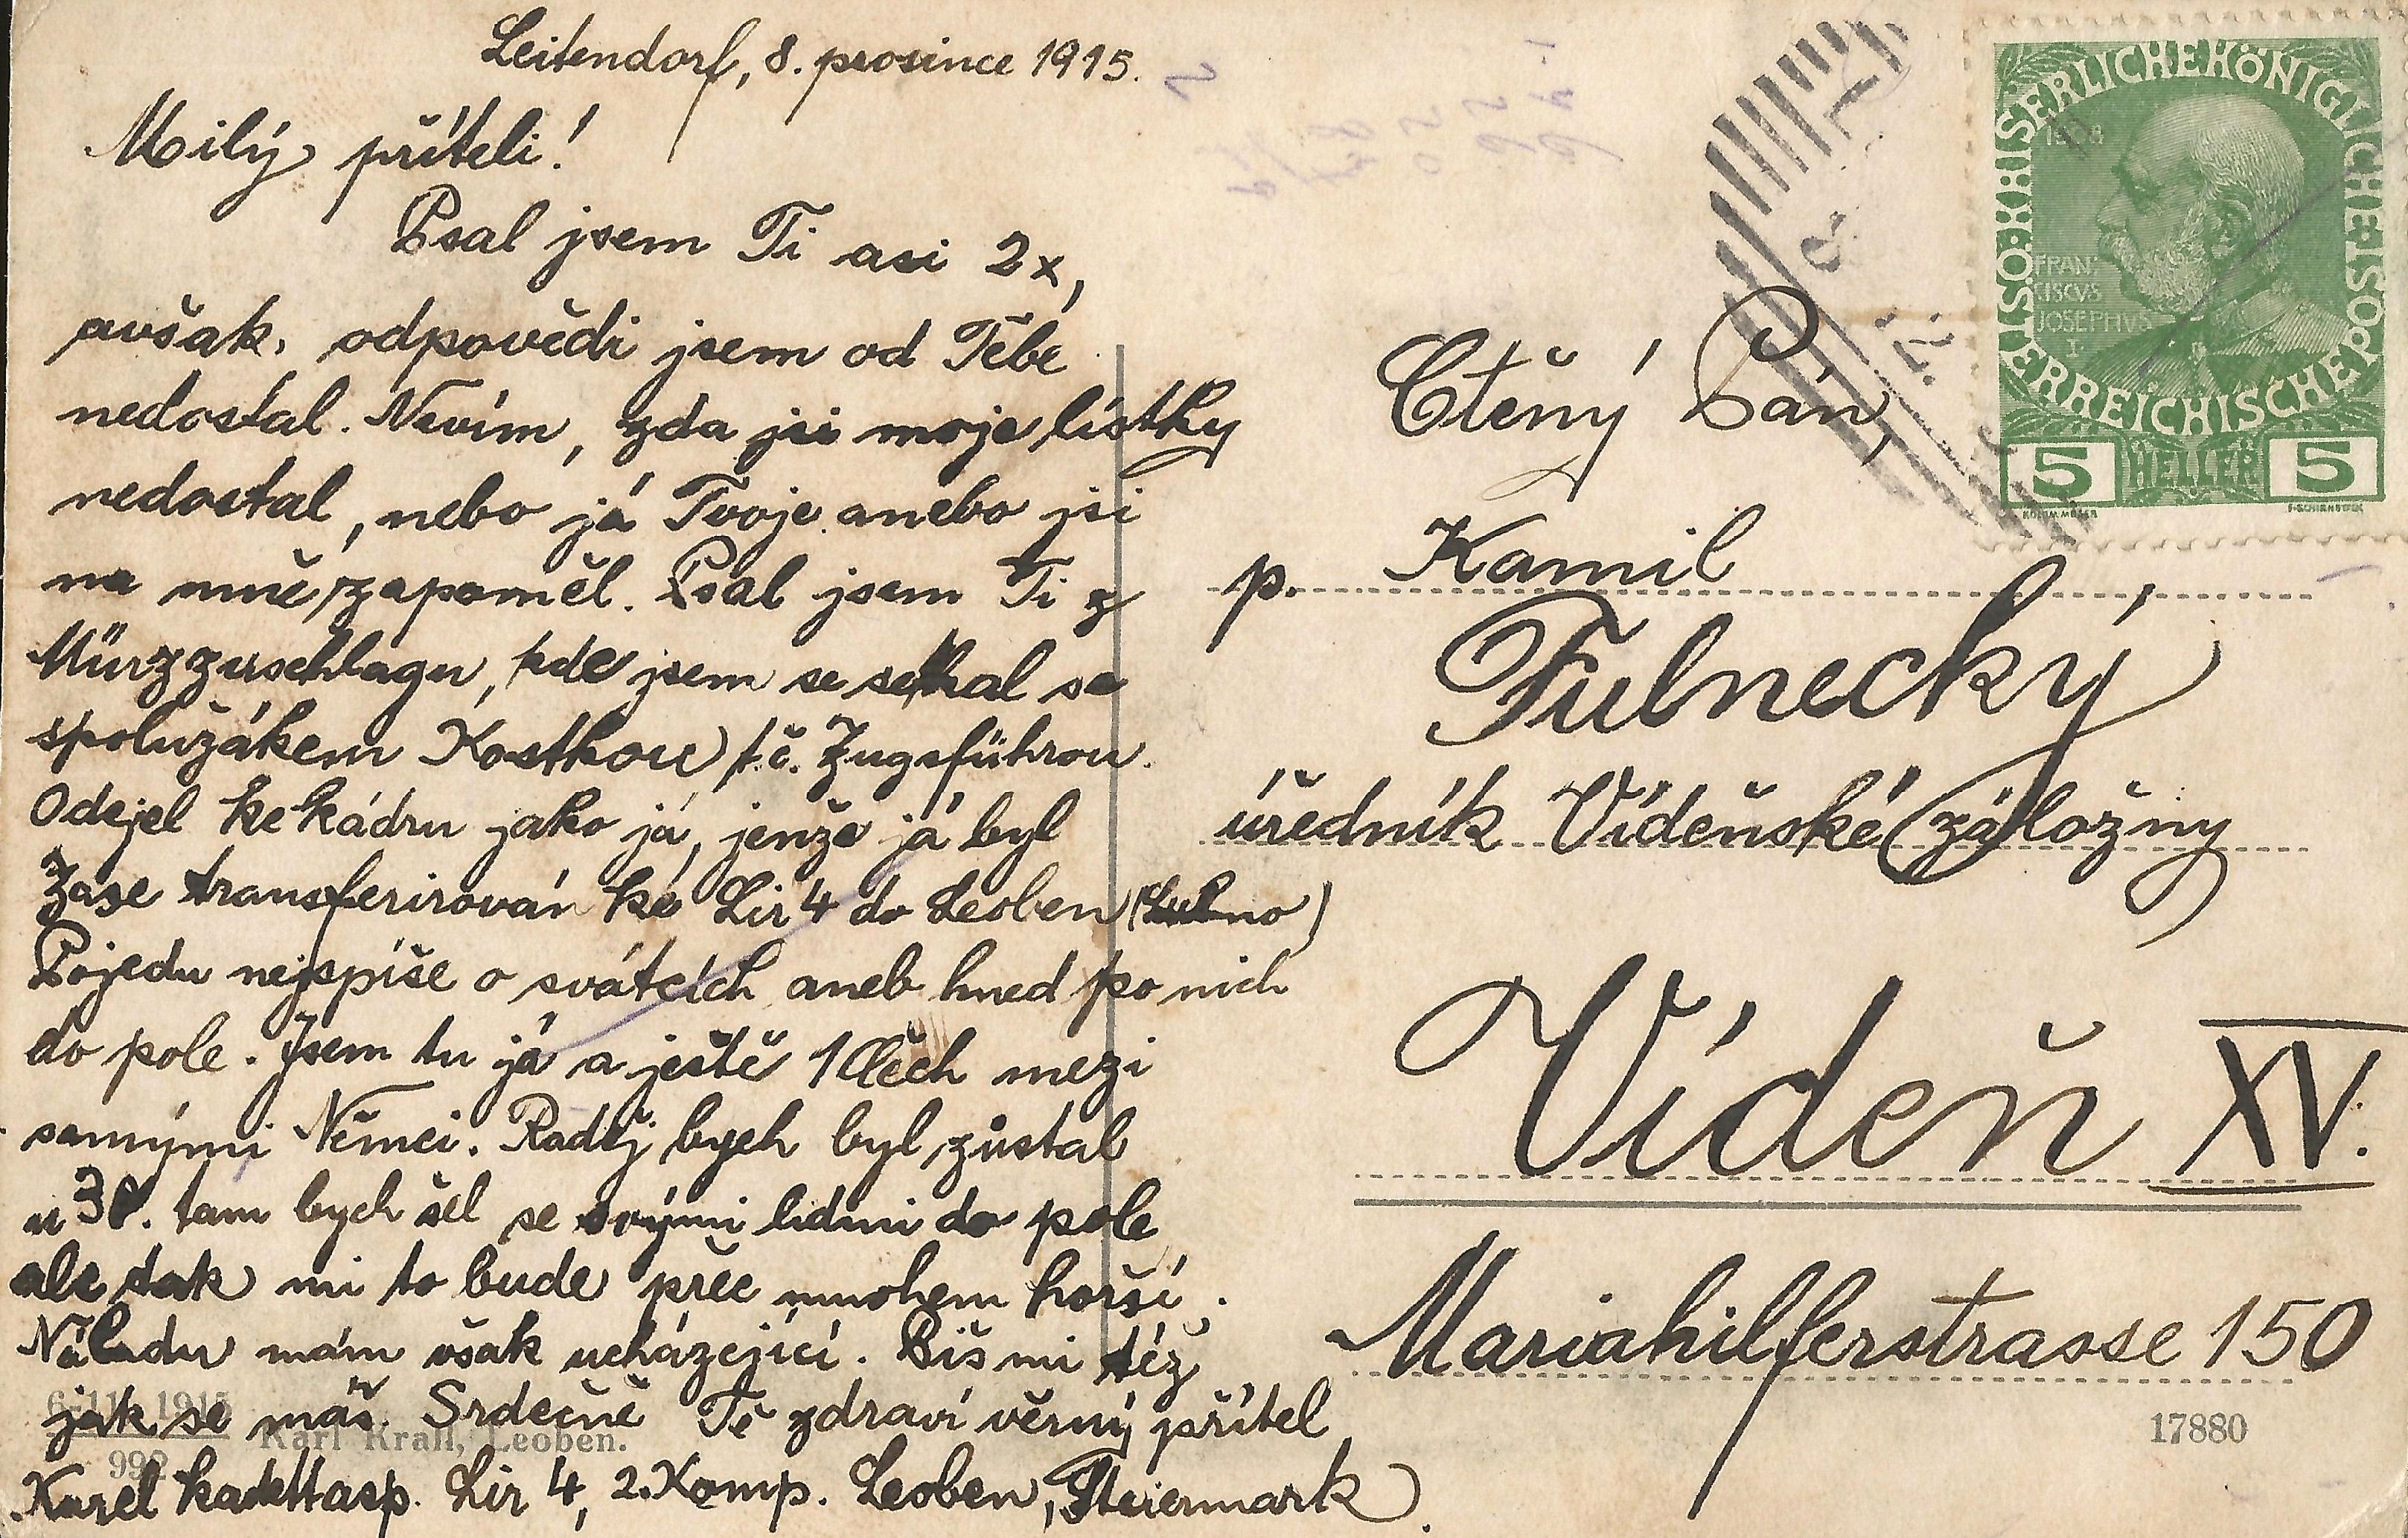 Leitendorf, 8. prosince 1915.
Milý příteli!
Psal jsem Ti asi 2x,
avšak, odpovědi jsem od Tebe
nedostal. Nevím, zda jsi moje lístky
nedostal, nebo já Tvoje anebo jsi
na mne zapoměl. Psal jsem Ti z
Mürzzuschlagu, kde jsem se setkal se
spolužákem Kostkou t.č. Zugsführou.
Odejel ke kádru jako já, jenže já byl
zase transferirován ke Lir 4 do Leoben
Pojedu nejspíše o svátcích aneb hned po nich
do pole. Jsem tu já a ještě 1 Čech mezi
samými Němci. Raděj bych byl zůstal
u tam bych šel se svými lidmi do pole
ale tak mi to bude přec mnohem horší.
Náladu mám však ucházející. Piš mi též
jak se máš. Srdečně Tě zdraví věrný přítel
Karel kadettasp. Lir 4, 2. Komp. Leoben, Steiermark.
6-11 1915
992
Karl Krall, Leoben.
Ctěný Pán,
p. Kamil
Fulnecký,
úředník Vídeňské záložny
Vídeň XV.
Mariahilferstrasse 150
17880
KAISERLICHE KÖNIGLICHE ÖSTERREICHISCHE POST
1908
FRAN
CISCVS
JOSEPHVS
I
5 HELLER 5